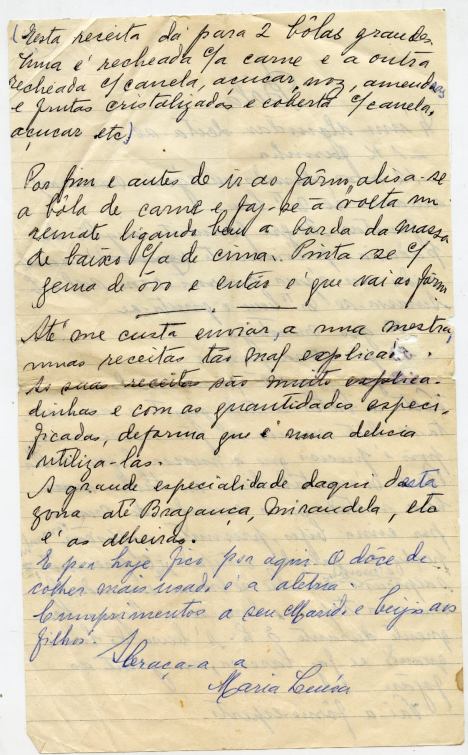 (Esta receita dá para 2 bôlas grandes.
Uma é recheada c/a carne e a outra
recheada c/canela, açucar, noz, amendoas
e frutas cristalizadas e coberta c/canela,
açucar etc)
Por fim e antes de ir ao fôrno, alisa-se
a bôla de carne e faz-se à volta um
remate ligando bem a borda da massa
de baixo c/a de cima. Pinta se c/
gema de ôvo e então é que vai ao fôrno
Até me custa enviar, a uma mestra,
umas receitas tão mal explicadas.
As suas receitas são muito explica-
dinhas e com as quantidades especi-
ficadas, de forma que é uma delicia
utiliza-las.
A grande especialidade daqui desta
zona até Bragança, Mirandela, etc
é as alheiras.
E por hoje fico por aqui. O dôce de
colher mais usado é a aletria.
Cumprimentos a seu Marido e beijos aos
filhos.
Abraça-a a
Maria Luísa